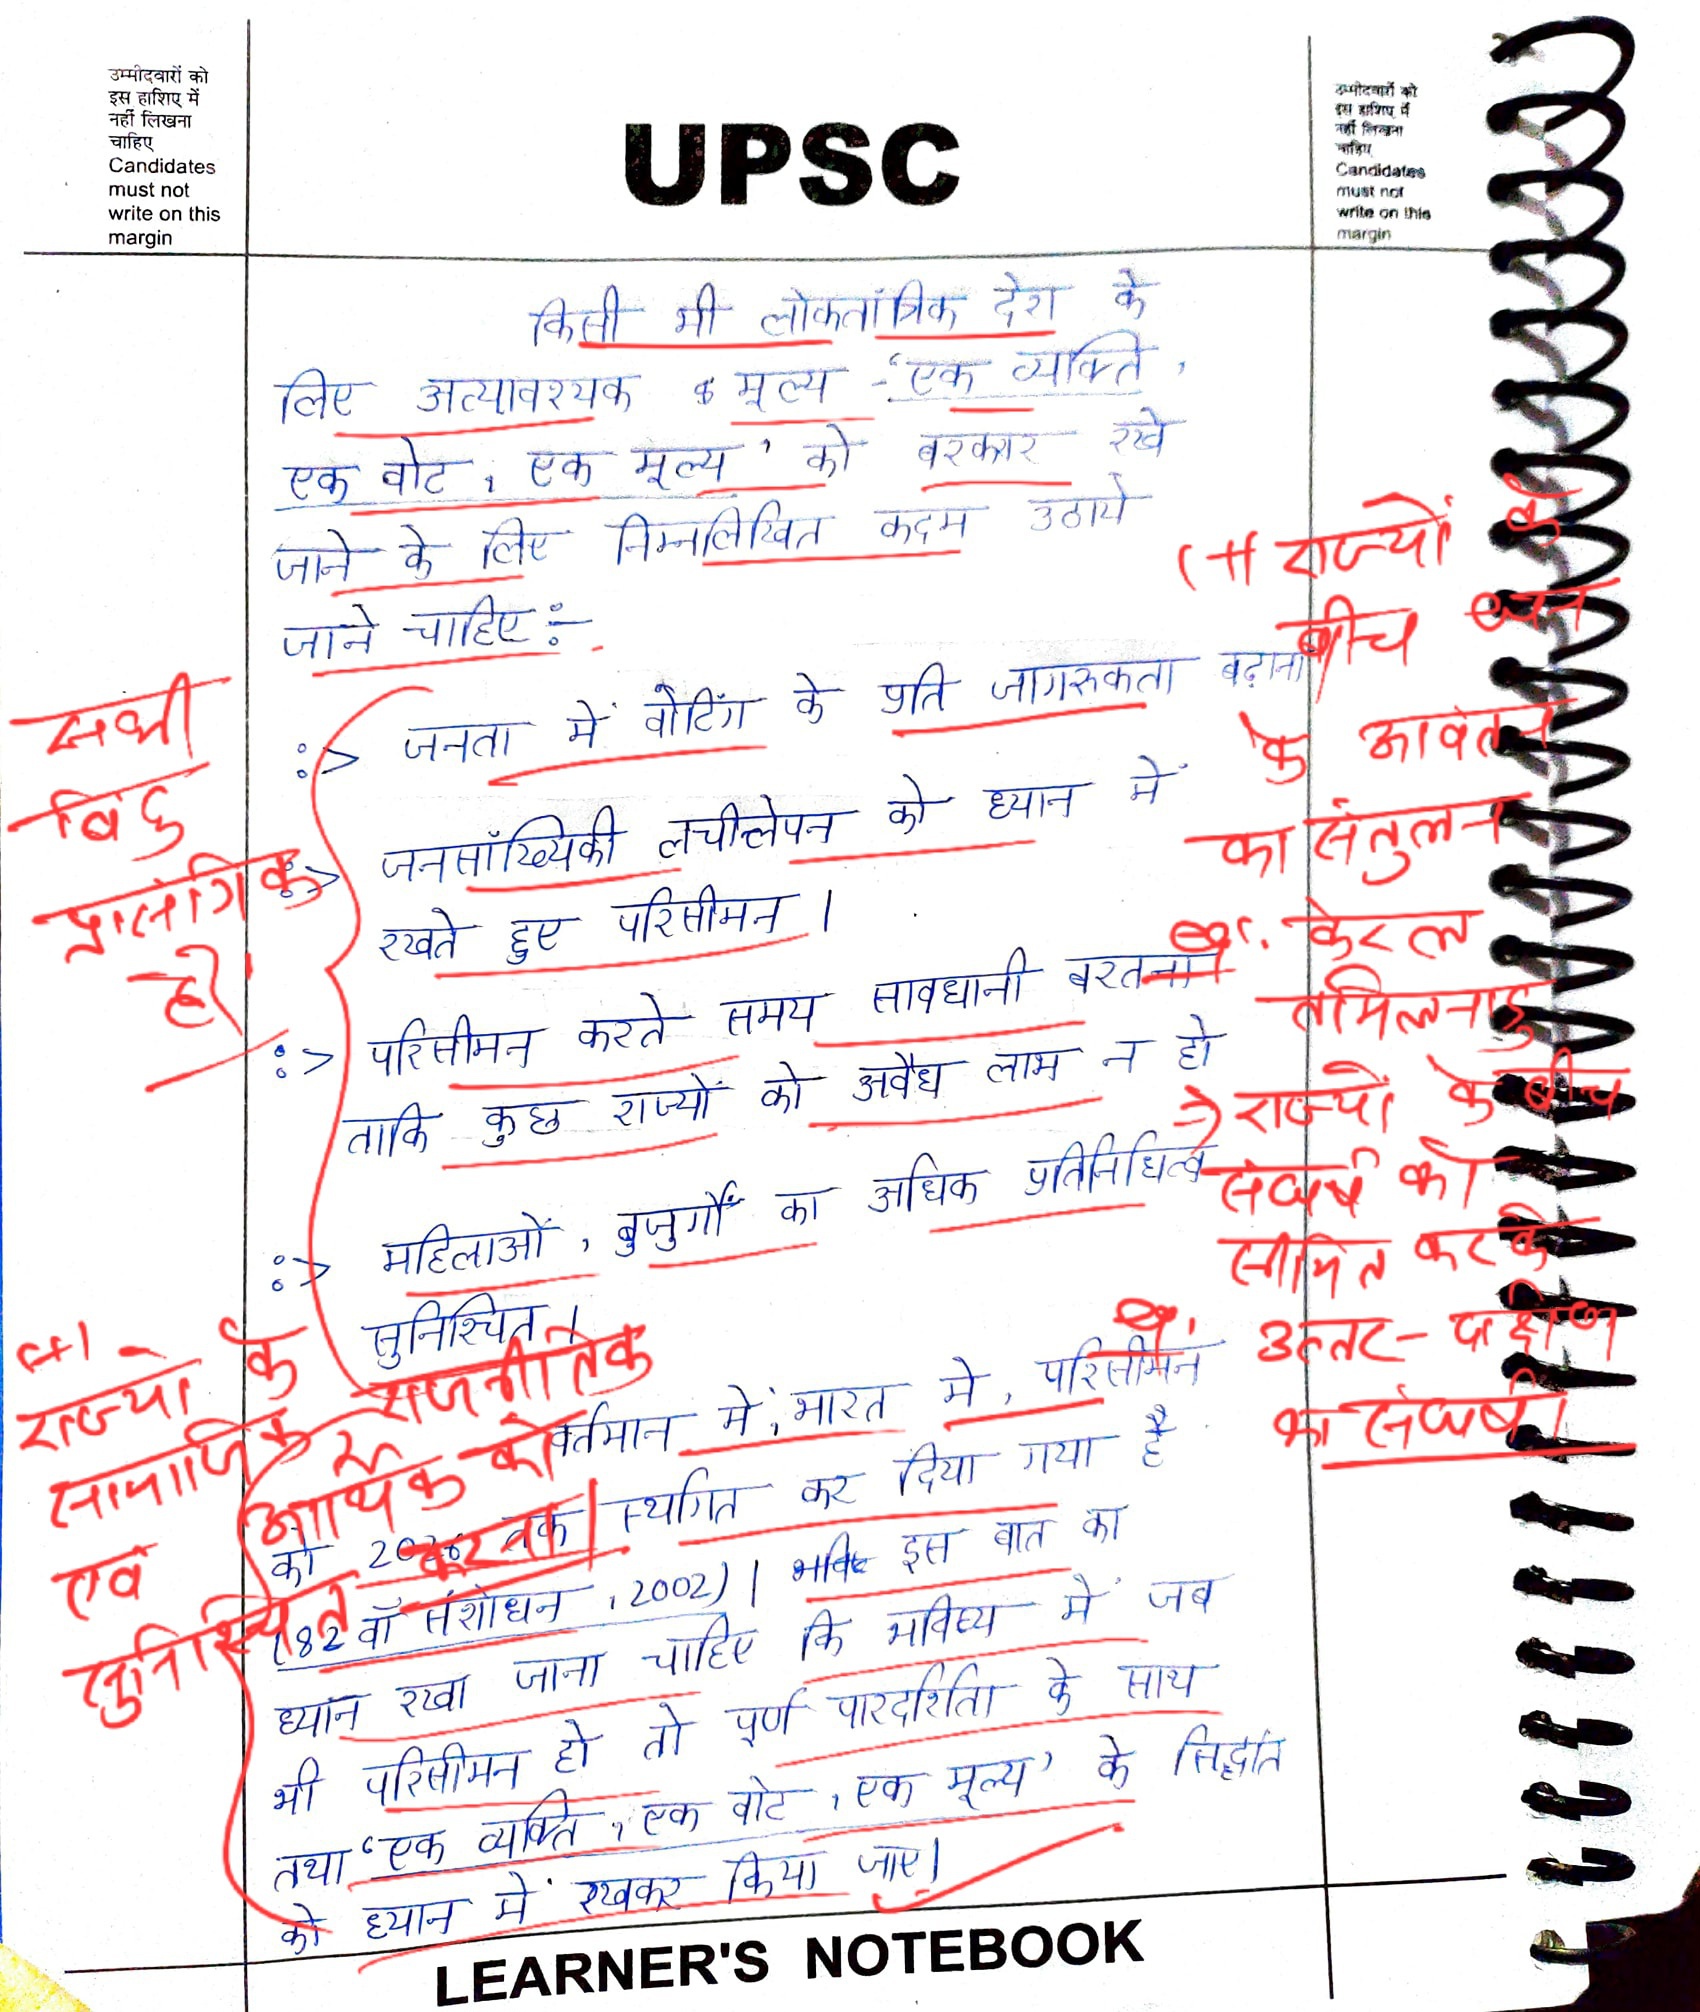 उम्मीदवारों को
इस हाशिए में
नहीं लिखना
चाहिए
Candidates
must not
write on this
margin
UPSC
उम्मीदवारों को
इस हाशिए में
नहीं लिखना
चाहिए
Candidates
must not
write on this
margin
किसी भी लोकतांत्रिक देश के
लिए अत्यावश्यक मूल्य - 'एक व्यक्ति,
एक वोट, एक मूल्य' को बरकार रखे
जाने के लिए निम्नलिखित कदम उठाये
जाने चाहिए :-
:> जनता में वोटिंग के प्रति जागरुकता बढ़ाना
:> जनसाँख्यिकी लचीलेपन को ध्यान में
रखते हुए परिसीमन।
:> परिसीमन करते समय सावधानी बरतना
ताकि कुछ राज्यों को अवैध लाभ न हो
:> महिलाओं, बुजुर्गों का अधिक प्रतिनिधित्व
सुनिश्चित।
वर्तमान में, भारत में, परिसीमन
को 2026 तक स्थगित कर दिया गया है
(82 वाँ संशोधन, 2002)। इस बात का
ध्यान रखा जाना चाहिए कि भविष्य में जब
भी परिसीमन हो तो पूर्ण पारदर्शिता के साथ
तथा 'एक व्यक्ति, एक वोट, एक मूल्य' के सिद्धांत
को ध्यान में रखकर किया जाए।
सभी
बिंदु
प्रासंगिक
है।
(+) राज्यों के
बीच
के आवंटन
का संतुलन
केरल
तमिलनाडु
→ राज्यों के बीच
संघर्ष को
सीमित करके
उत्तर - दक्षिण
का संघर्ष।
(+)
राज्यों के
सामाजिक राजनीतिक
एवं आर्थिक को
सुनिश्चित करना।
LEARNER'S NOTEBOOK